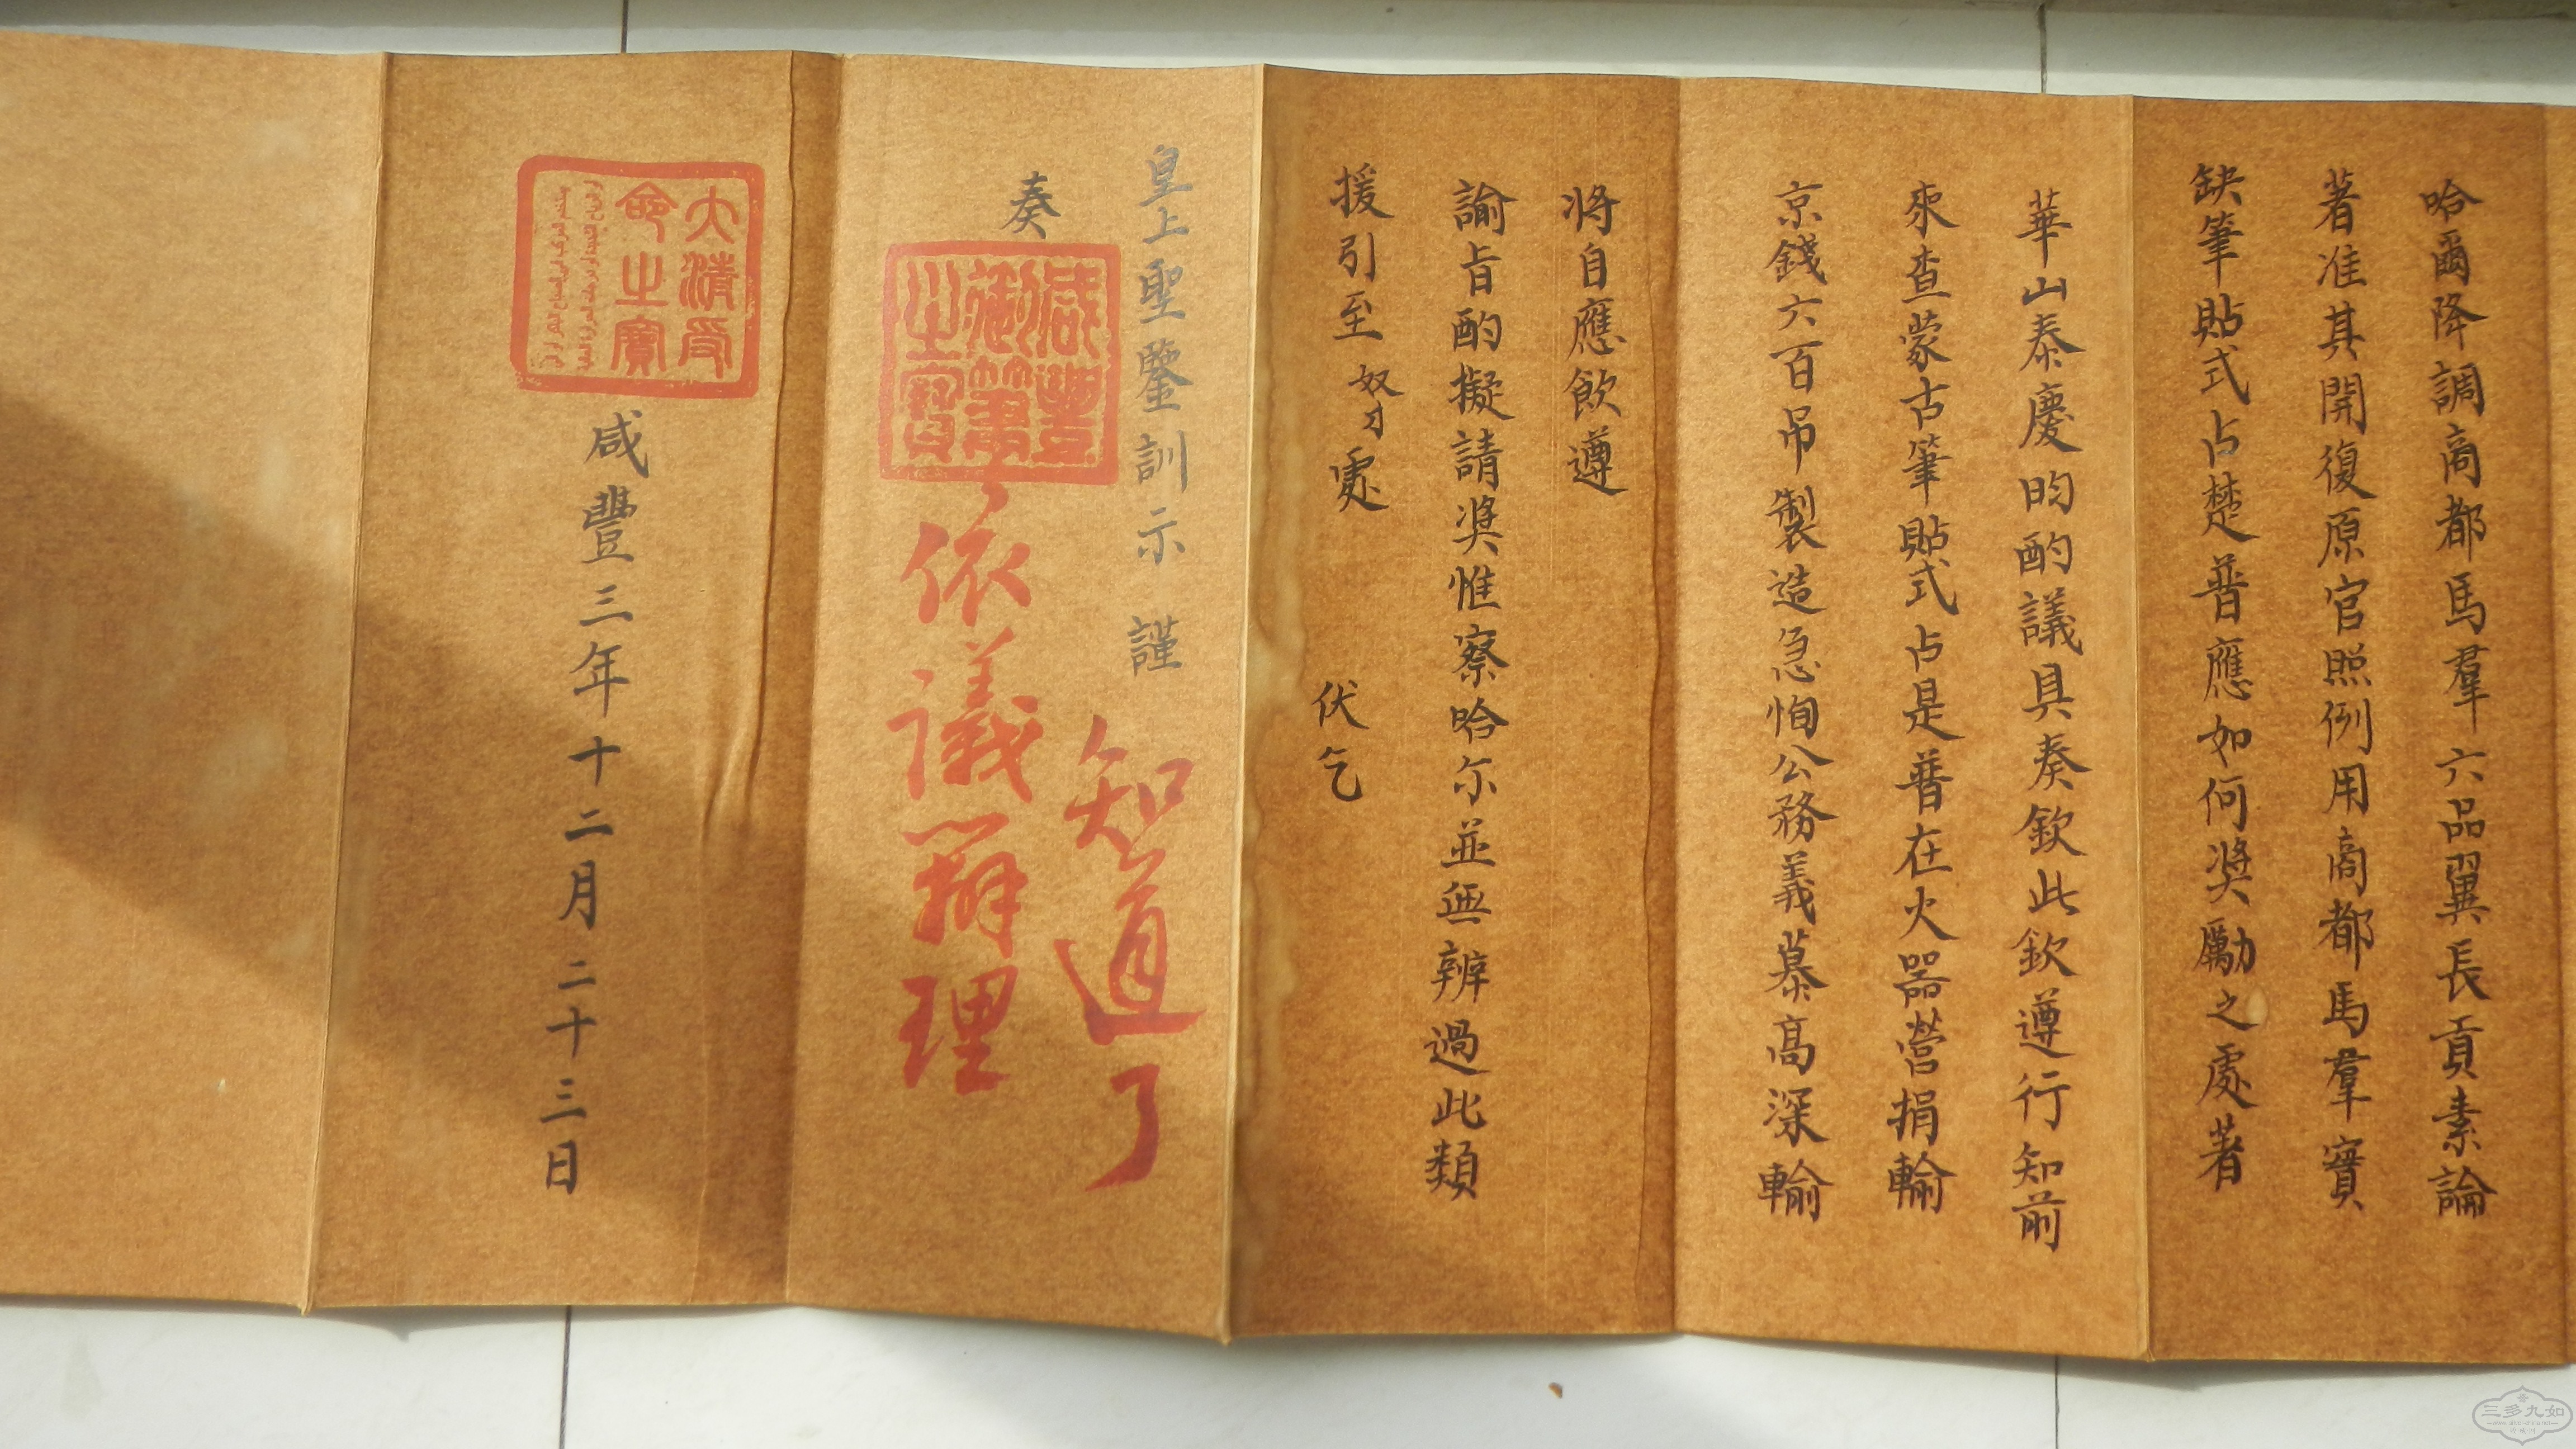 哈爾降調商都馬羣六品翼長貢素論
著准其開復原官照例用商都馬羣實
缺筆貼式占楚普應如何奖勵之處著
華山泰慶昀酌議具奏欽此欽遵行知前
來查蒙古筆貼式占是普在火器營捐輸
京錢六百吊製造急恂公務義慕高深輸
将自應飲遵
諭旨酌擬請奖惟察哈尔並無辨過此類
援引至奴才處 伏乞
皇上聖鑒訓示 謹
奏
知道了
依議辦理
咸豐
御筆
之寶
大清受
命之寶
咸豐三年十二月二十三日
三多九如